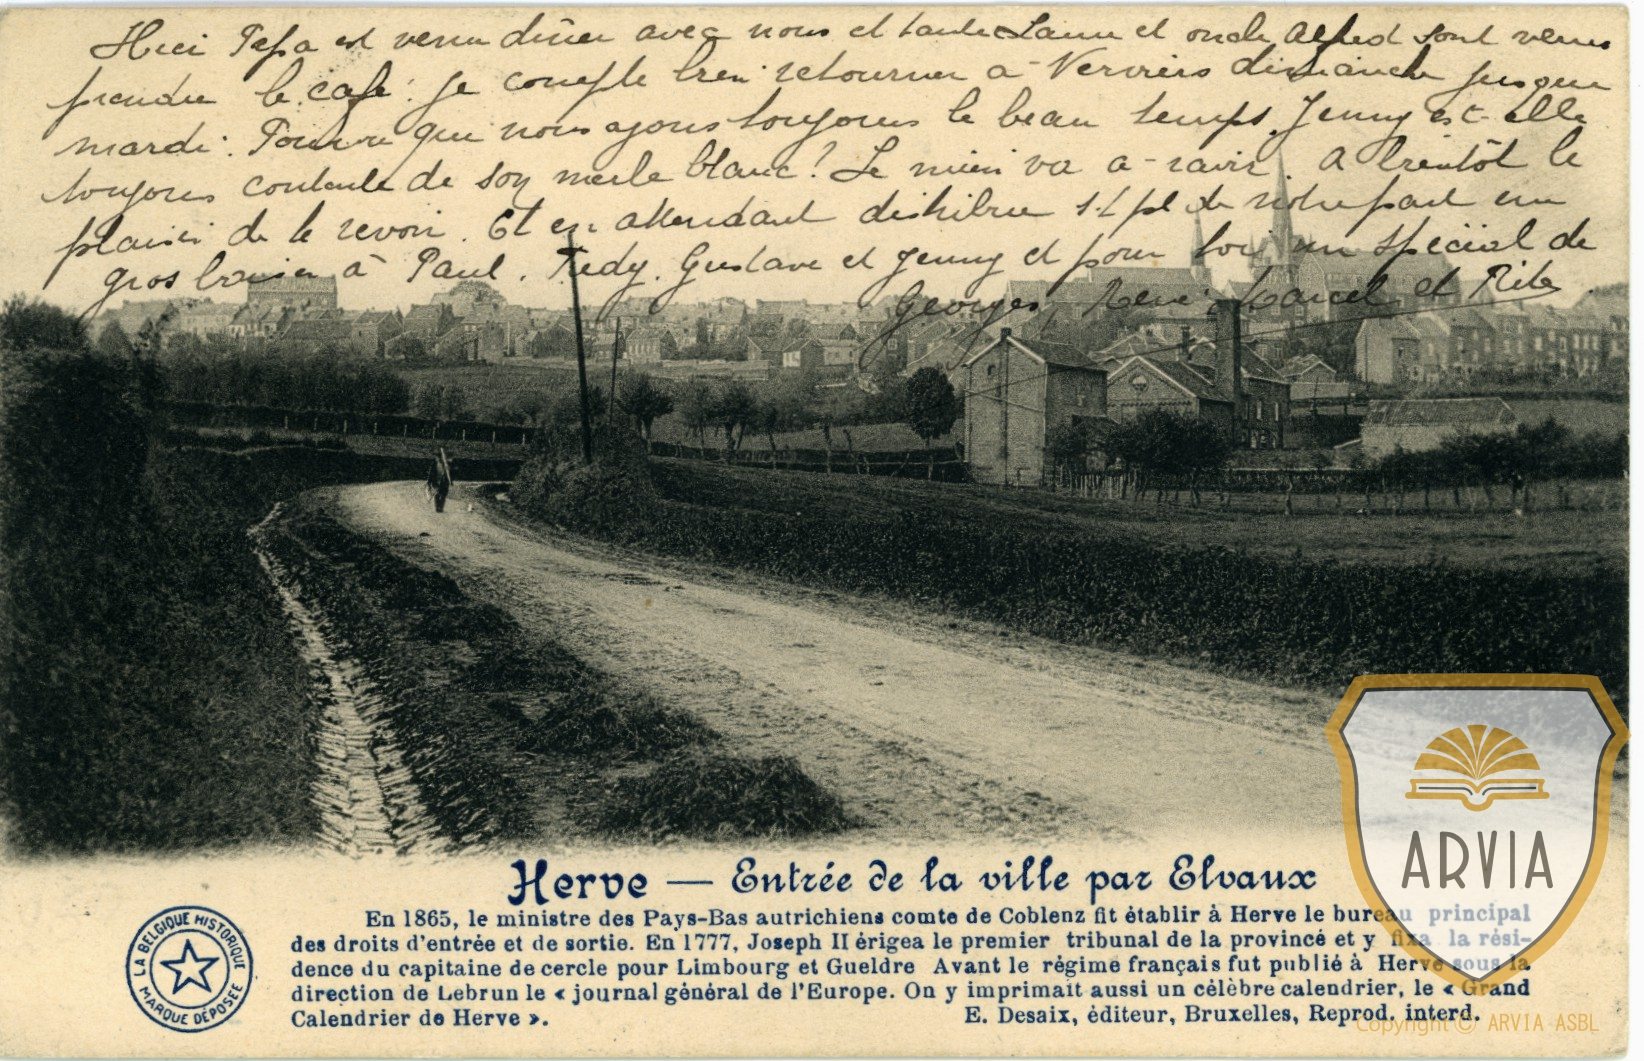 Hier Papa est venu dîner avec nous et tante Laure et oncle Alfred sont venus
prendre le café. Je compte bien retourner à Verviers dimanche jusque
mardi. Pourvu que nous ayons toujours le beau temps. Jenny est-elle
toujours contente de son merle blanc! Le mien va à ravir. A bientôt le
plaisir de te revoir. Et en attendant distribue s.t.pl. de notre part un
gros baiser à Paul. Fredy. Gustave et Jenny et pour toi un spécial de
Georges René Marcel et Rita
Herve — Entrée de la ville par Elvaux
En 1865, le ministre des Pays-Bas autrichiens comte de Coblenz fit établir à Herve le bureau principal
des droits d'entrée et de sortie. En 1777, Joseph II érigea le premier tribunal de la provincé et y fixa la rési-
dence du capitaine de cercle pour Limbourg et Gueldre Avant le régime français fut publié à Herve sous la
direction de Lebrun le « journal général de l'Europe. On y imprimait aussi un célèbre calendrier, le « Grand
Calendrier de Herve ».
E. Desaix, éditeur, Bruxelles, Reprod. interd.
LA BELGIQUE HISTORIQUE
MARQUE DÉPOSÉE
ARVIA
Copyright © ARVIA ASBL